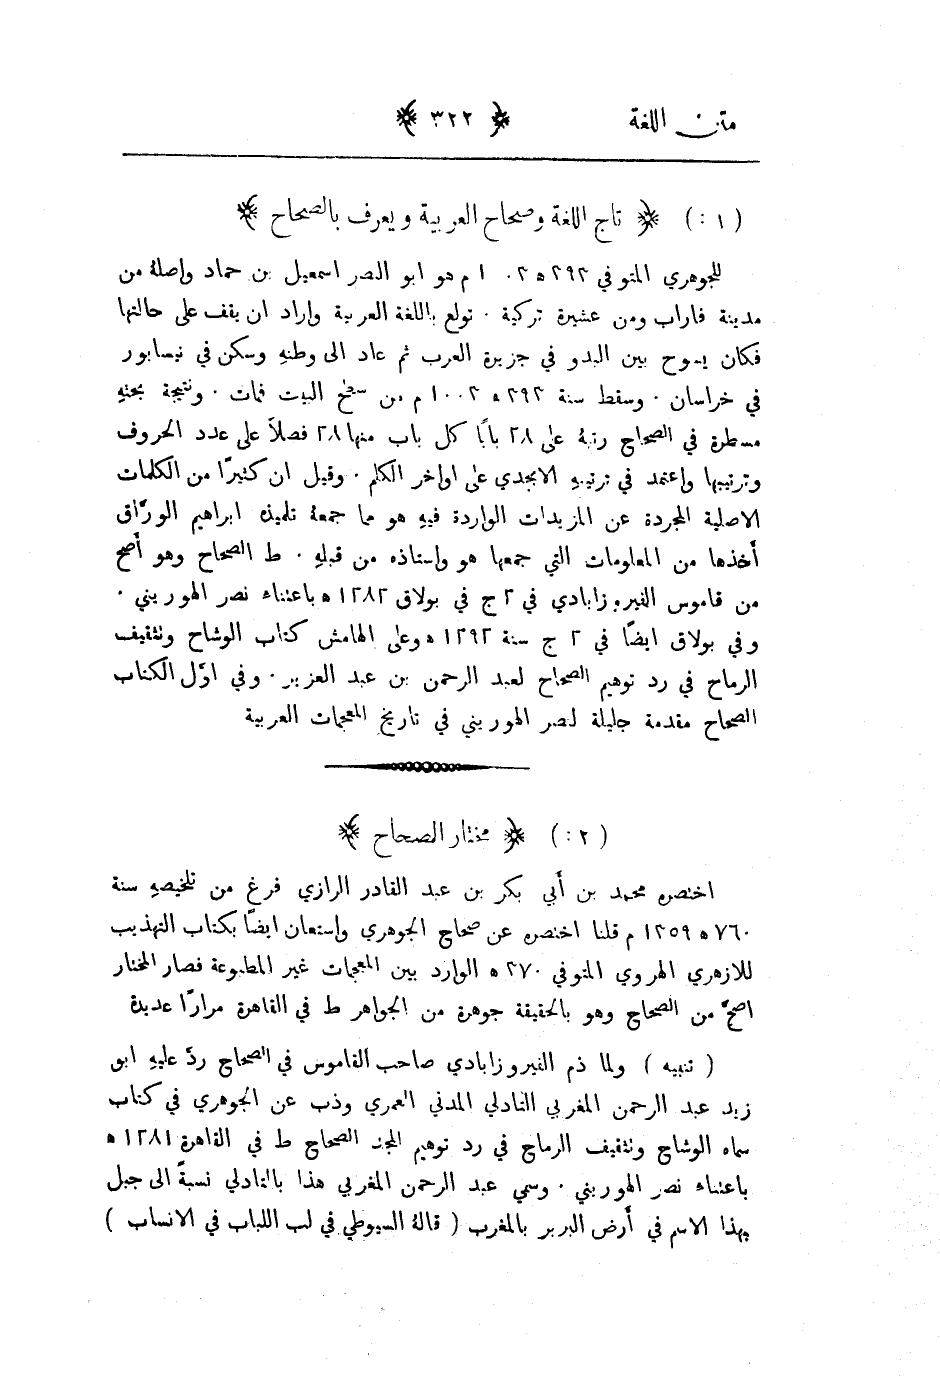 متن اللغة ﴿ ٣٢٢ ﴾
( ١ : ) ﴿ تاج اللغة وصحاح العربية ويعرف بالصحاح ﴾
للجوهري المتوفي ٣٩٣ ه ١٠٠٢ م هو ابو النصر اسمعيل بن حماد واصلهُ من
مدينة فاراب ومن عشيرة تركية ٠ تولع باللغة العربية واراد ان يقف على حالتها
فكان يسوح بين البدو في جزيرة العرب ثم عاد الى وطنهِ وسكن في نيسابور
في خراسان ٠ وسقط سنة ٣٩٣ ه ١٠٠٢ م من سطح البيت فمات ٠ ونتيجة بحثهِ
مسطرة في الصحاح رتبهُ على ٢٨ بابًا كل باب منها ٢٨ فصلاً على عدد الحروف
وترتيبها واعتمد في ترتيبهِ الابجدي على اواخر الكلم ٠ وقيل ان كثيرًا من الكلمات
الاصلية المجردة عن المزيدات الواردة فيهِ هو مما جمعهُ تلميذه ابراهيم الورَّاق
أخذها من المعلومات التي جمعها هو واستاذه من قبلهِ ٠ ط الصحاح وهو أصح
من قاموس الفيروزابادي في ٢ ج في بولاق ١٢٨٢ ه باعتناء نصر الهوريني ٠
وفي بولاق ايضًا في ٢ ج سنة ١٢٩٢ ه وعلى الهامش كتاب الوشاح وتثقيف
الرماح في رد توهيم الصحاح لعبد الرحمن بن عبد العزيز ٠ وفي اوَّل الكتاب
الصحاح مقدمة جليلة لنصر الهوريني في تاريخ المعجمات العربية
( ٢ : ) ﴿ مختار الصحاح ﴾
اختصره محمد بن أبي بكر بن عبد القادر الرازي فرغ من تلخيصهِ سنة
٧٦٠ ه ١٣٥٩ م قلنا اختصره عن صحاح الجوهري واستعان ايضًا بكتاب التهذيب
للازهري الهروي المتوفي ٣٧٠ ه الوارد بين المعجمات غير المطبوعة فصار المختار
اصحَّ من الصحاح وهو بالحقيقة جوهرة من الجواهر ط في القاهرة مرارًا عديدة
( تنبيه ) ولما ذم الفيروزابادي صاحب القاموس في الصحاح ردَّ عليهِ ابو
زيد عبد الرحمن المغربي التادلي المدني العمري وذب عن الجوهري في كتاب
سماه الوشاح وتثقيف الرماح في رد توهيم المجد الصحاح ط في القاهرة ١٢٨١ ه
باعتناء نصر الهوريني ٠ وسمي عبد الرحمن المغربي هذا بالتادلي نسبةً الى جبل
بهذا الاسم في أرض البربر بالمغرب ( قالهُ السيوطي في لب اللباب في الانساب )